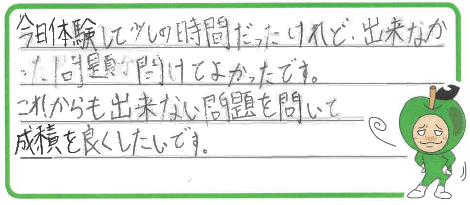 今日体験して少しの時間だったけれど、出来なか
った問題が問けてよかったです。
これからも出来ない問題を問いて
成積を良くしたいです。